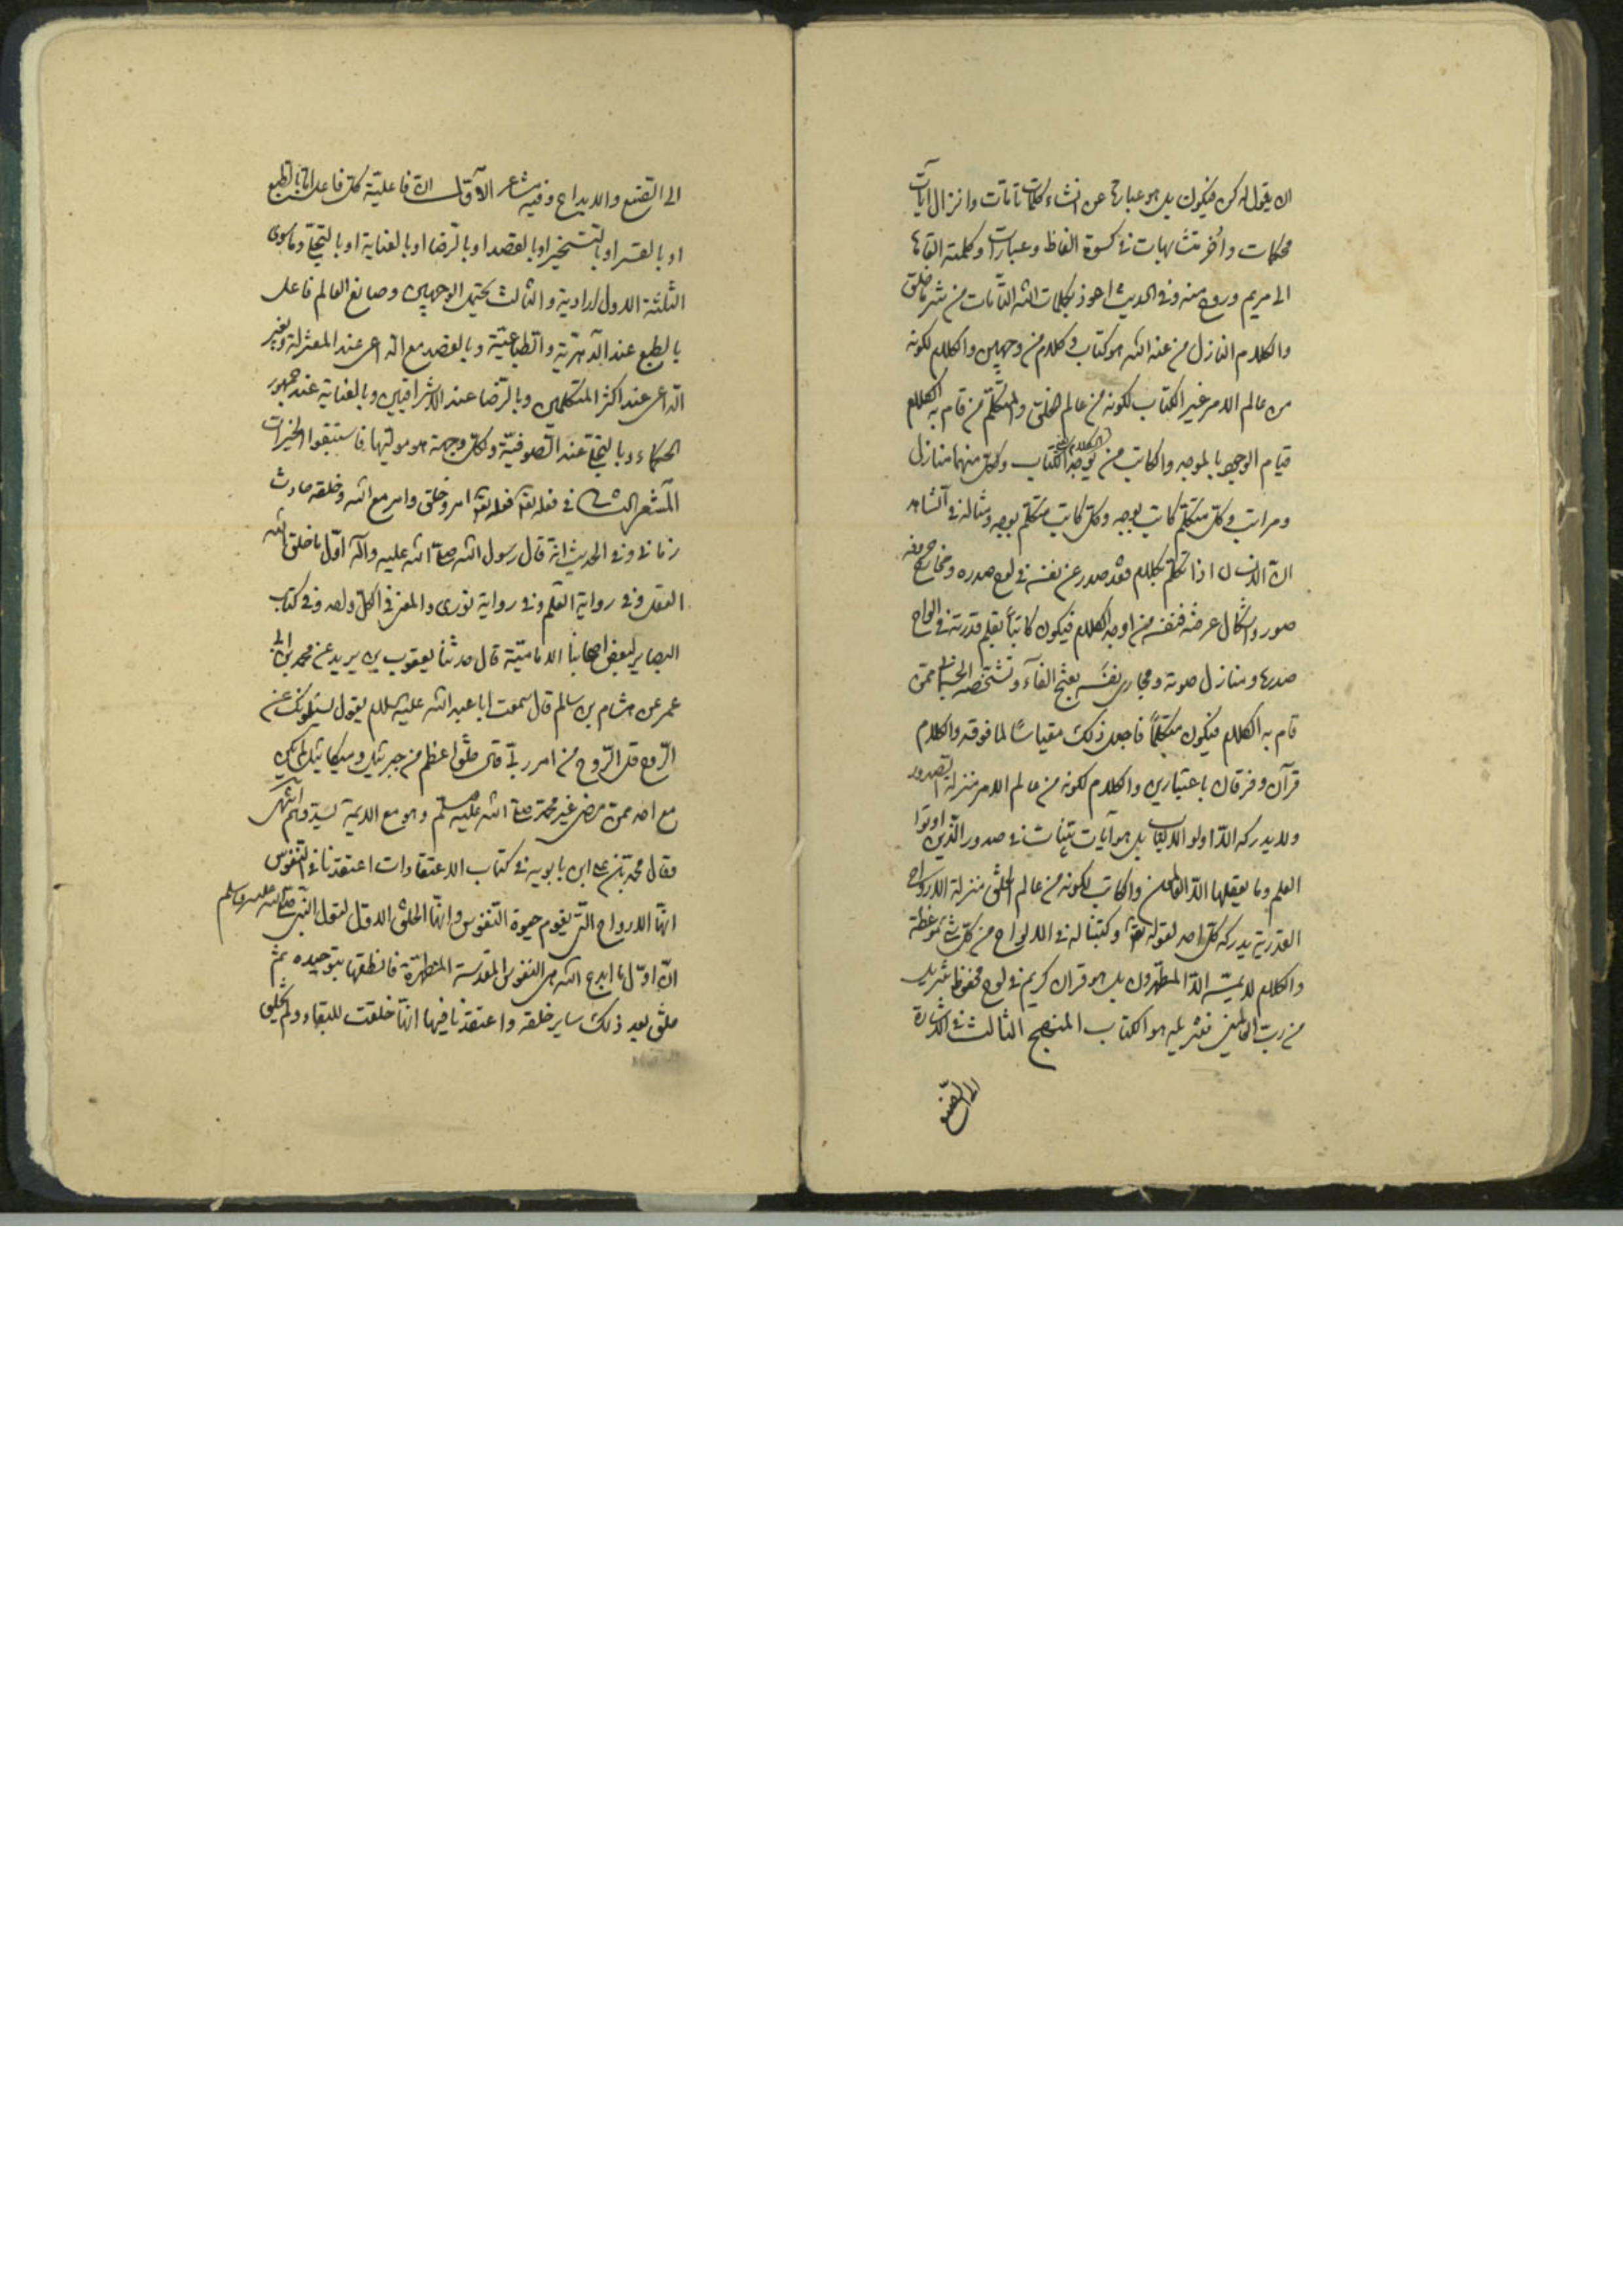 ان يقول له كن فيكون بل هو عبارة عن انشاء كلمات تامات وانزال آيات
محكمات واُخر متشابهات في كسوة الفاظ وعبارات وكلمته القاها
الى مريم وروح منه وفي الحديث اعوذ بكلمات الله التامات من شر ما خلق
والكلام النازل من عند الله هو كتاب وكلام من وجهين والكلام لكونه
من عالم الامر غير الكتاب لكونه من عالم الخلق والمتكلّم من قام به الكلام
قيام الوجود بالموجد والكاتب من يوجد الكلام يعني الكتاب ولكل منهما منازل
ومراتب وكل متكلم كاتب بوجه وكل كاتب متكلم بوجه ومثاله في الشاهد
انّ الانسان اذا تكلم بكلام فقد صدر عن نفسه في لوح صدره ومخارج حروفه
صور واشكال عرضه فنفسه من اوجد الكلام فيكون كاتباً بقلم قدرته في الواح
صدره ومنازل صوته ومجارى نفَسه بفتح الفآء وشخصه الجسماني ممّن
قام به الكلام فيكون متكلّماً فاجعل ذلك مقياسًا لما فوقه والكلام
قرآن وفرقان باعتبارين والكلام لكونه من عالم الامر منزله الصدور
ولا يدركه الّا اولو الالباب بل هو آيات بيّنات في صدور الّذين اوتوا
العلم وما يعقلها الّا العالمون والكتاب لكونه من عالم الخلق منزله الالواح
القدرية يدركه كل احد لقوله تعالى وكتبنا له في الالواح من كل شيء موعظة
والكلام لا يمسّه الّا المطهّرون بل هو قرآن كريم في لوح محفوظ تنزيل
من ربّ العالمين فتنزيله هو الكتاب المنهج الثالث في الاشارة
الى الصنع
الى الصنع والابداع وفيه مشاعر الاوّل انّ فاعلية كل فاعل امّا بالطبع
او بالقسر او بالتسخير او بالقصد او بالرّضا او بالعناية او بالتجلّي وما سوى
الثلثة الاول ارادية والثالث يحتمل الوجهين وصانع العالم فاعل
بالطبع عند الدّهريّة والطباعيّة وبالقصد مع الداعي عند المعتزلة وبغير
الدّاعى عند اكثر المتكلمين وبالرّضا عند الاشراقيين وبالعناية عند جمهور
الحكماء وبالتجلّي عند الصّوفيّة ولكلّ وجهة هو مولّيها فاستبقوا الخيرات
المشعر الثاني في فعله تعالى فعله تعالى امر وخلق وامره مع الله وخلقه حادث
زماني وفي الحديث انّه قال رسول الله صلّى الله عليه وآله اوّل ما خلق الله
العقل وفي رواية القلم وفي رواية نورى والمعنى في الكلّ واحد وفي كتاب
البصاير لبعض اصحابنا الامامية قال حدثنا يعقوب بن يزيد عن محمد بن ابي
عمير عن هشام بن سالم قال سمعت ابا عبد الله عليه السلام يقول يسئلونك عن
الرّوح قل الرّوح من امر ربّى قال خلق اعظم من جبرئيل وميكائيل لم يكن
مع احد ممن مضى غير محمد صلّى الله عليه وسلم وهو مع الائمة يسدّدهم انتهى
وقال محمد بن علي ابن بابويه في كتاب الاعتقادات اعتقدنا في النفوس
انّها الارواح الّتى يقوم حيوة النّفوس وانّها الخلق الاوّل لقول النّبى صلّى الله عليه وسلم
انّ اوّل ما ابدع الله هى النفوس المقدّسة المطهّرة فانطقها بتوحيده ثم
خلق بعد ذلك ساير خلقه واعتقدنا فيها انّها خلقت للبقاء ولم يخلق